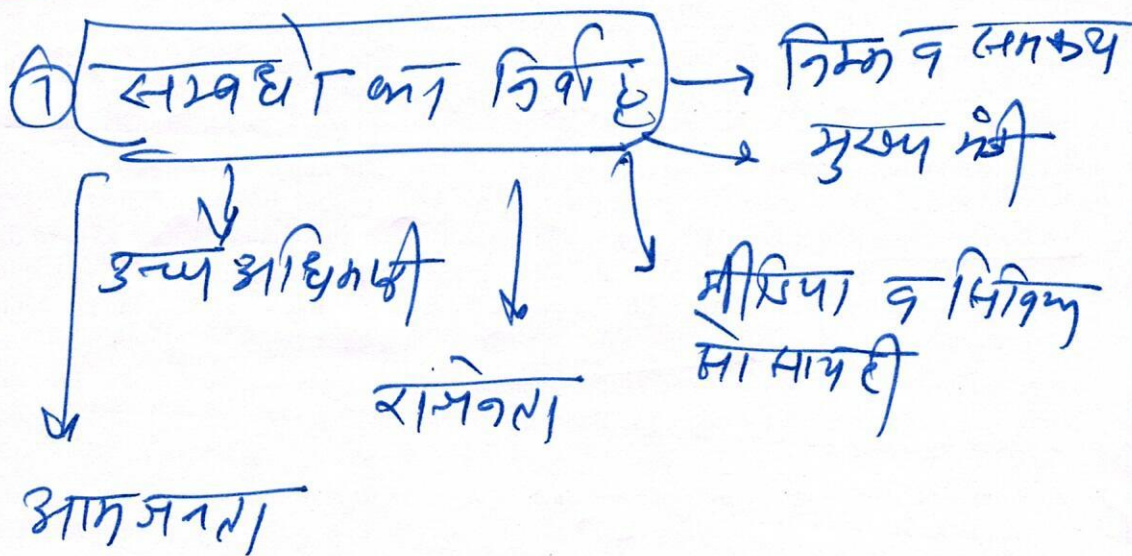 ① सम्बधों का निर्वाह
निम्न व समकक्ष
मुख्य मंत्री
उच्च अधिकारी
मीडिया व सिविल
सोसायटी
राजनेता
आम जनता